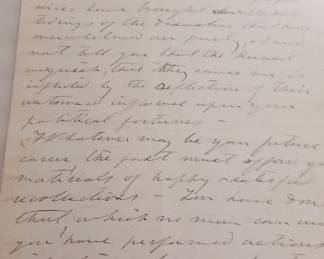 wires have brought
tidings of the disasters that have
overwhelmed our party, I need
not tell you that the keenest
anguish, that they cause me, is
inflicted by the reflection of their
untoward influence upon your
political fortunes —
Whatever may be your future
career, the past must afford you
materials of happy
recollections — You have done
that which no man can
you have performed actions